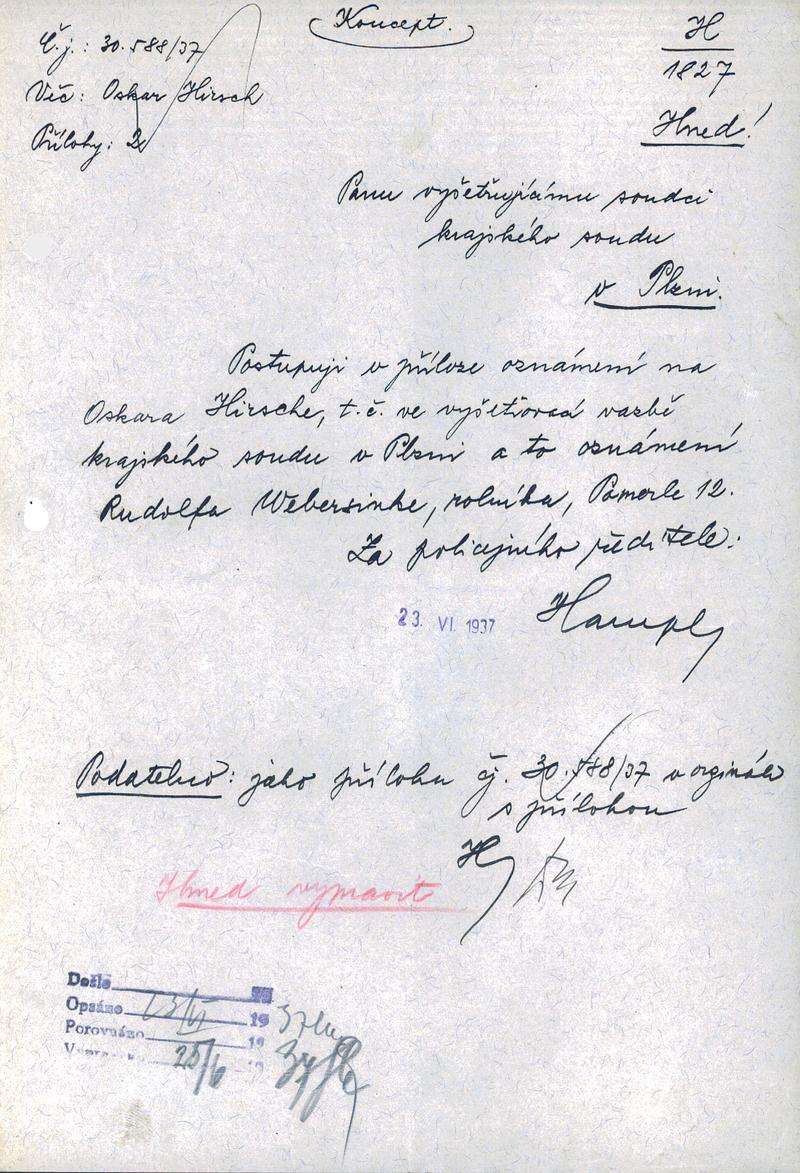 Koncept.
Č.j.: 30.588/37
Věc: Oskar Hirsch
Přílohy: 2
H
1827
Hned!
Panu vyšetřujícímu soudci
krajského soudu
v Plzni.
Postupuji v příloze oznámení na
Oskara Hirsche, t.č. ve vyšetřovací vazbě
krajského soudu v Plzni a to oznámení
Rudolfa Webersinke, rolníka, Pomerle 12.
Za policejního ředitele:
23. VI. 1937
Hampl
Podatelno: jako přílohu čj. 30.588/37 v orginále
s přílohou
H
Ihned vypravit
Došlo
Opsáno 19
Porovnáno 19
25/6